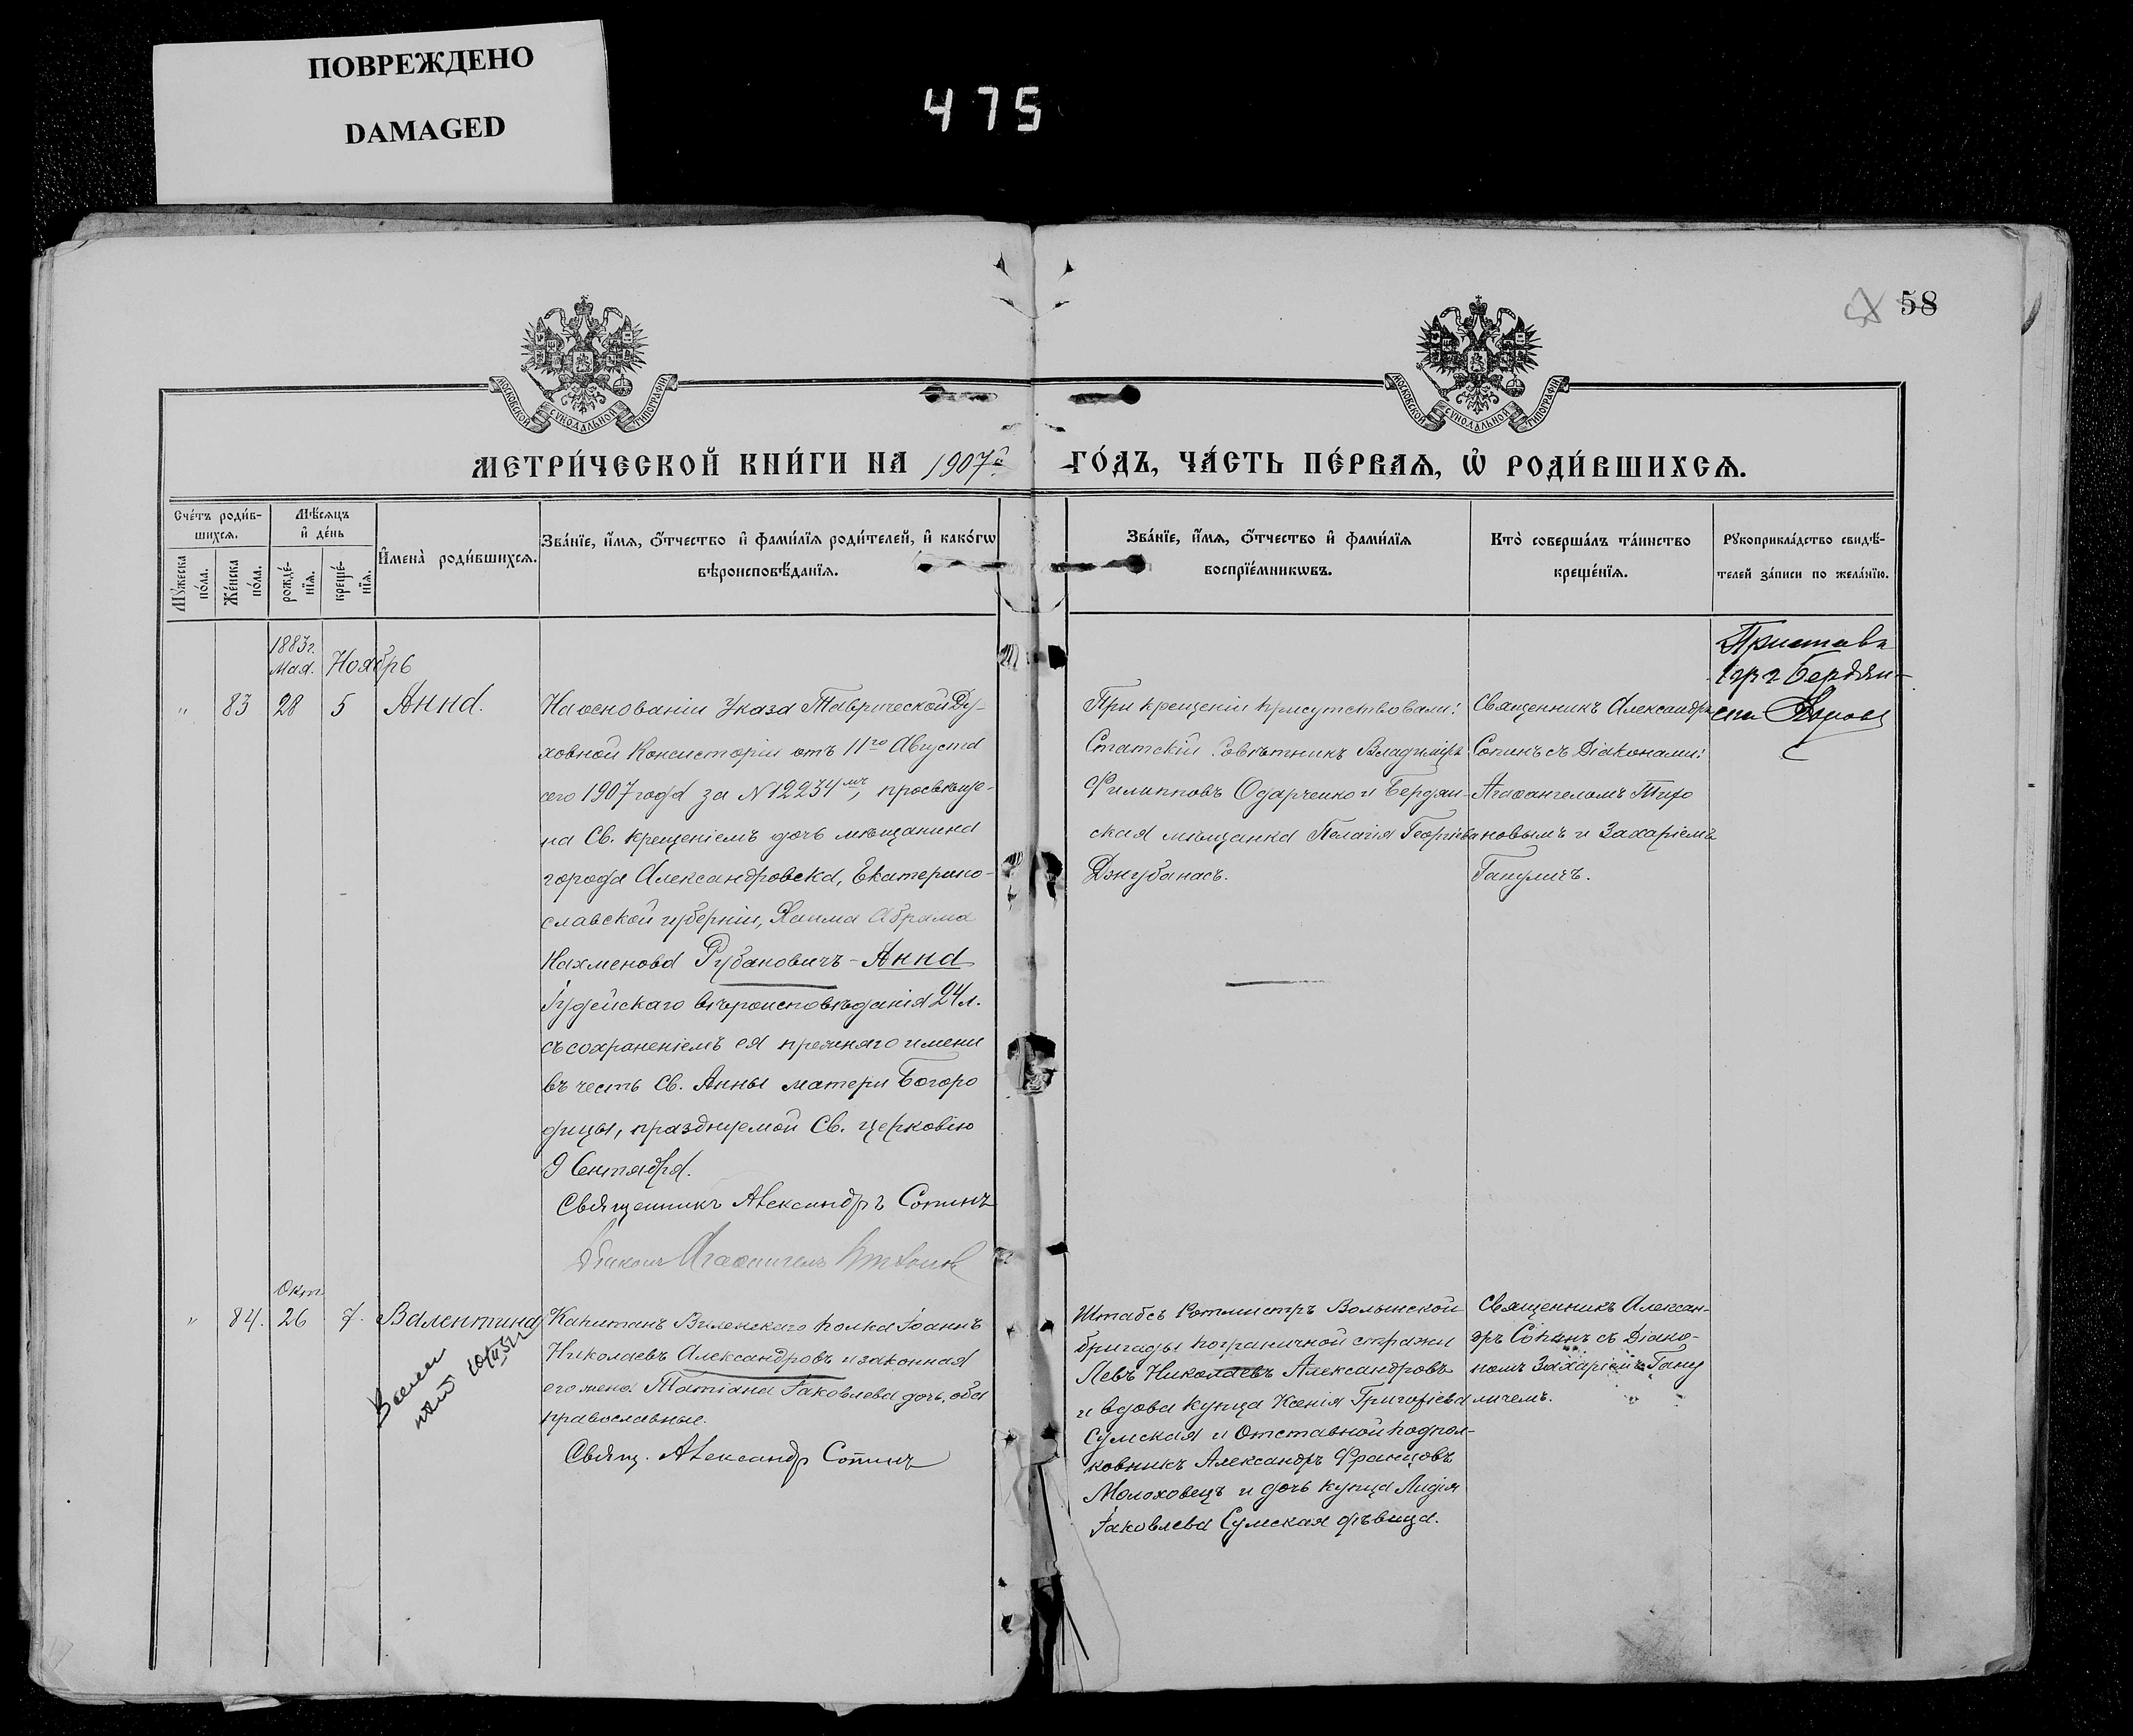 ПОВРЕЖДЕНО
DAMAGED
475
58
МОСКОВСКОЙ СѴНОДАЛЬНОЙ ТИПОГРАФІИ
МОСКОВСКОЙ СѴНОДАЛЬНОЙ ТИПОГРАФІИ
МЕТРИ́ЧЕСКОЙ КНИ́ГИ НА 1907й
ГО́ДЪ, ЧА́СТЬ ПЕ́РВАѦ, Ѡ҆ РОДИ́ВШИХСѦ.
Сче́тъ роди́в-
шихсѧ.
Мѣ́сѧцъ
и҆ де́нь
Мꙋ́жеска
по́ла.
Же́нска
по́ла.
рожде́-
нїѧ.
креще́-
нїѧ.
И҆мена̀ роди́вшихсѧ.
Зва́нїе, и҆́мѧ, ѻ҆́тчество и҆ фами́лїѧ роди́телей, и҆ како́гѡ
вѣроисповѣ́данїѧ.
Зва́нїе, и҆́мѧ, ѻ҆́тчество и҆ фами́лїѧ
воспрїе́мникѡвъ.
Кто̀ соверша́лъ та́инство
креще́нїѧ.
Рꙋкоприкла́дство свидѣ́-
телей за́писи по жела́нїю.
1883г.
Мая. Ноябрь
" 83 28 5 Анна.
На основаніи Указа Таврической Ду-
ховной Консисторіи отъ 11го Августа
сего 1907 года за №12234мъ, просвѣще-
на Св. крещеніемъ дочь мѣщанина
города Александровска, Екатерино-
славской губерніи, Хаима Абрама
Нахменова Рубановичъ - Анна
Іудейскаго вѣроисповѣданія 24 л.
съ сохраненіемъ ея прежняго имени
въ честь Св. Анны матери Богоро
дицы, празднуемой Св. церковію
9 Сентября.
Священникъ Александръ Сопинъ
Діаконъ Агаѳангелъ
При крещеніи присутствовали:
Статскій Совѣтникъ Владиміръ
Филипповъ Одарченко и Бердян-
ская мѣщанка Пелагія Георгіева
Джубанасъ.
Священникъ Александръ
Сопинъ съ Діаконами:
Агаѳангеломъ Тихо
новымъ и Захаріемъ
Гануличъ.
Пристава
гор. Бердян-
ска
Окт.
" 84. 26 7. Валентина
Капитанъ Виленскаго полка Іоаннъ
Николаевъ Александровъ и законная
его жена Татіана Іаковлева дочь, оба
православные.
Свящ. Александръ Сопинъ
Штабсъ Ротмистръ Волынской
бригады пограничной стражи
Левъ Николаевъ Александровъ
и вдова купца Ксенія Григоріева
Сумская и Отставной подпол-
ковникъ Александръ Францовъ
Молоховецъ и дочь купца Лидія
Іаковлева Сумская дѣвица.
Священникъ Алексан-
дръ Сопинъ съ Діако-
номъ Захаріемъ Гану
личемъ.